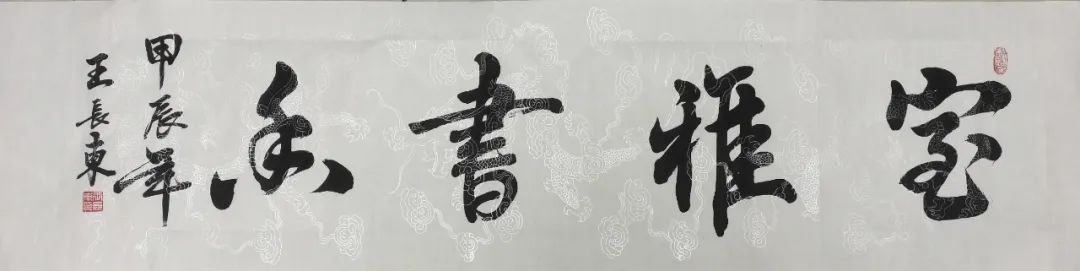 室雅書香
甲辰年
王長東